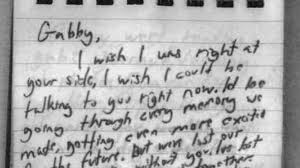 Gabby,
I wish I was right at
your side, I wish I could be
talking to you right now. Id be
going through every memory we
made, getting even more excited
the future. But were lost our
without you. Ive lost
together